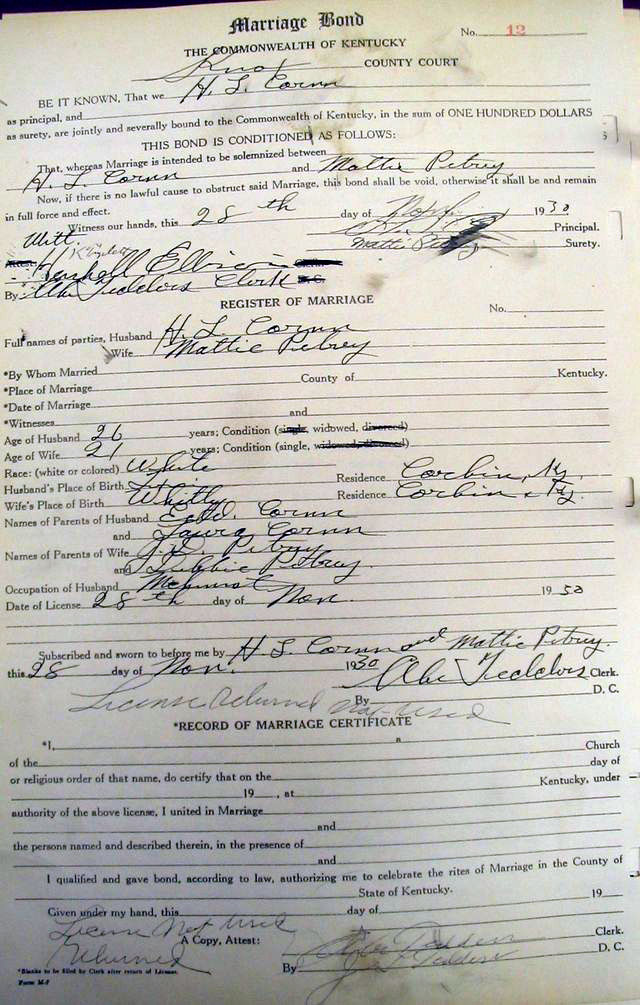 Marriage Bond
No. 12
THE COMMONWEALTH OF KENTUCKY
Knox COUNTY COURT
BE IT KNOWN, That we H. L. Cornn
as principal, and
as surety, are jointly and severally bound to the Commonwealth of Kentucky, in the sum of ONE HUNDRED DOLLARS
THIS BOND IS CONDITIONED AS FOLLOWS:
That, whereas Marriage is intended to be solemnized between
H. L. Cornn and Mattie Petrey
Now, if there is no lawful cause to obstruct said Marriage, this bond shall be void, otherwise it shall be and remain
in full force and effect.
Witness our hands, this 28 th day of Nov. 1930
Principal.
Witt. Mattie Surety.
Attest:
By: Abe Tedders Clerk
REGISTER OF MARRIAGE
No.
Full names of parties, Husband H. L. Cornn
Wife Mattie Petrey
*By Whom Married
*Place of Marriage County of Kentucky.
*Date of Marriage
*Witnesses and
Age of Husband 26 years; Condition (single, widowed, divorced)
Age of Wife 21 years; Condition (single, widowed, divorced)
Race: (white or colored) White
Husband's Place of Birth Residence Corbin, Ky.
Wife's Place of Birth Whitly Residence Corbin, Ky.
Names of Parents of Husband Cornn
and Laura Cornn
Names of Parents of Wife Petrey
and Petrey.
Occupation of Husband
Date of License 28 th day of Nov. 1930
Subscribed and sworn to before me by H L Cornn and Mattie Petrey.
this 28 day of Nov. 1930 Abe Tedders Clerk.
By D. C.
License Returned Not Used
*RECORD OF MARRIAGE CERTIFICATE
*I, a Church
of the day of
or religious order of that name, do certify that on the Kentucky, under
19 , at
authority of the above license, I united in Marriage
and
the persons named and described therein, in the presence of
and
I qualified and gave bond, according to law, authorizing me to celebrate the rites of Marriage in the County of
State of Kentucky.
Given under my hand, this day of 19
License Not Used
Returned
A Copy, Attest: Abe Tedders Clerk.
By Tedders D. C.
*Blanks to be filled by Clerk after return of License.
Form M-2